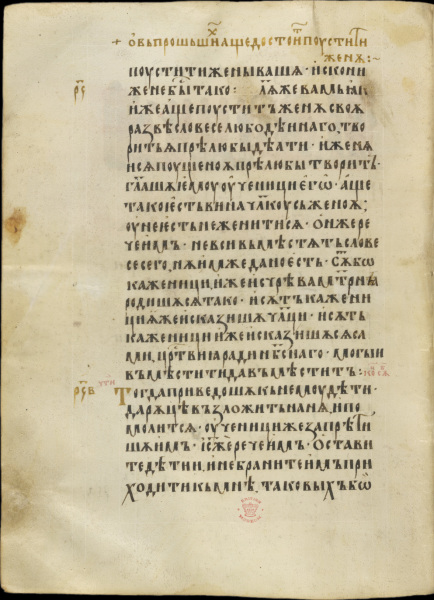 + ѡвъпрошьшиⷯ аще достоиⷮ поустиⷮ
женѫ:~
поустити жены вашѧ· искони
же не бы тако: гл҃ѧ же вамь
иже аще поуститъ женѫ своѫ
развѣ словесе любодѣинаго, тво
ритъ ѧ прѣлюбы дѣати· и женѧ
исѧ поущеноѫ прѣлюбы творитъ·
гл҃шѧ емоу оученици егѡ· аще
тако естъ вина чл҃коу съ женоѫ;
оунѣ естъ не женитисѧ· ѡн же ре
че имъ· не вси вьмѣстѧтъ слове
се сего, нѫ имже дано естъ· сѫⷮ бѡ
каженици, иже ис чрѣва мт҃рнѧ
родишѧсѧ тако· и сѫтъ кажени
ци ѧже исказишѧ чл҃ци· и сѫтъ
каженици иже исказишѧсѧ са
ми, цр҃твиа ради нб҃снаго· могыи
вьмѣстити да вьмѣститъ:
Тогда приведошѧ кь немоу дѣти·
да рѫцѣ възложитъ на нѧ, и по
молитсѧ· оученици же запрѣти
шѧ имъ· іс҃ же рече имъ. остави
те дѣтии, и не браните имъ при
ходити къ мнѣ. таковыхъ бѡ